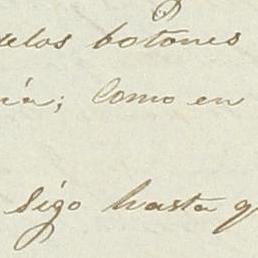 delos botones
ia; Como en
Sigo hasta q